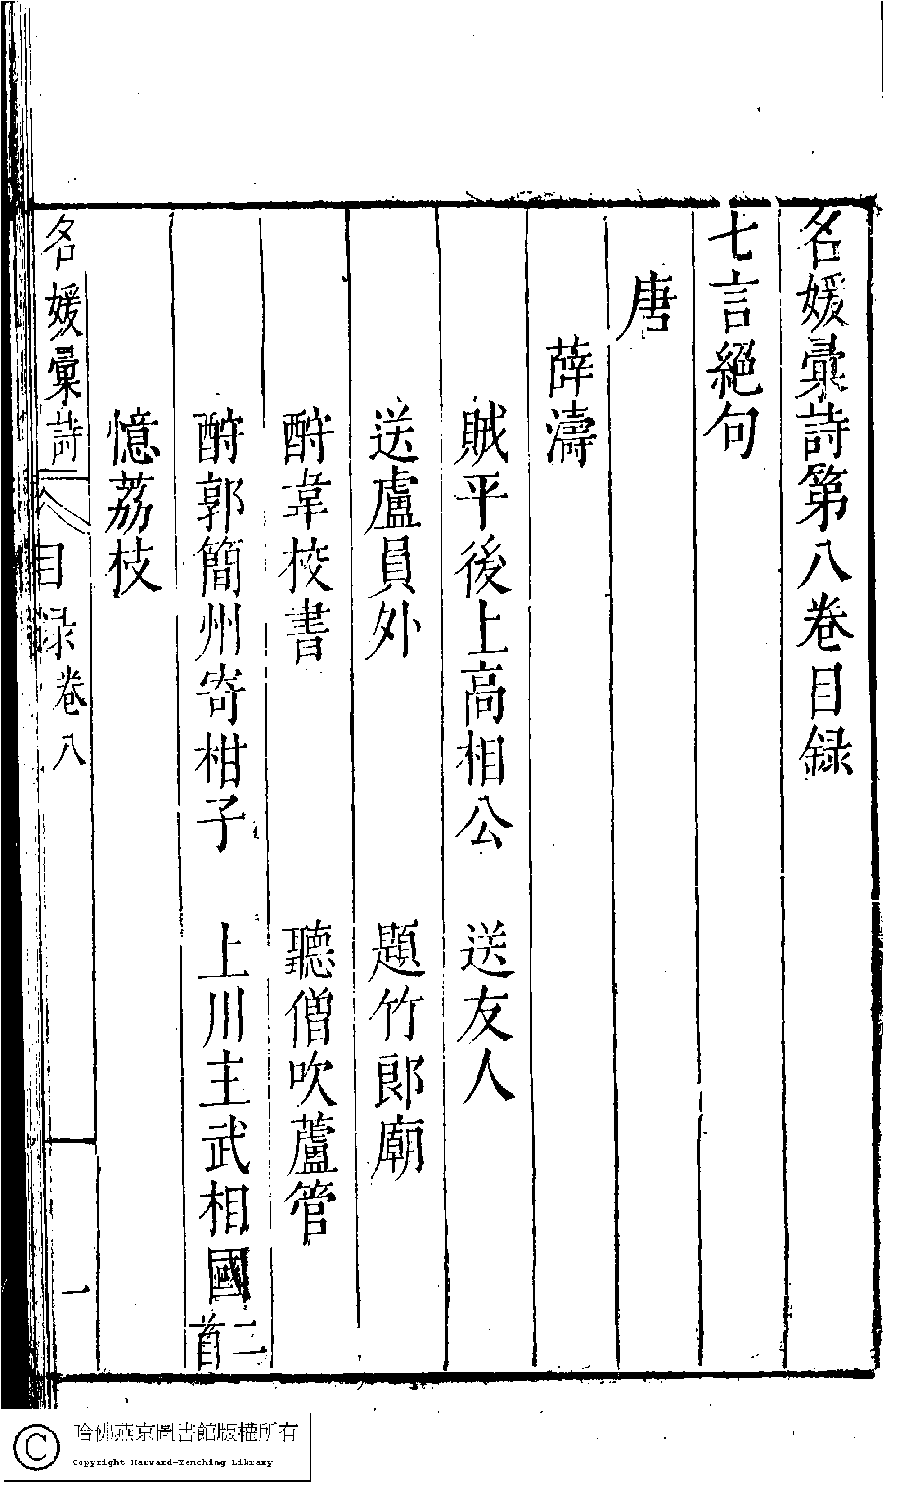 名媛彙詩第八卷目録
七言絕句
唐
薛濤
賊平後上高相公　送友人
送盧員外　題竹郎廟
酧韋校書　聽僧吹蘆管
酧郭簡州寄柑子　上川主武相國二首
憶荔枝
名媛彙詩　目録卷八　一
哈佛燕京圖書館版權所有
Copyright Harvard-Yenching Library